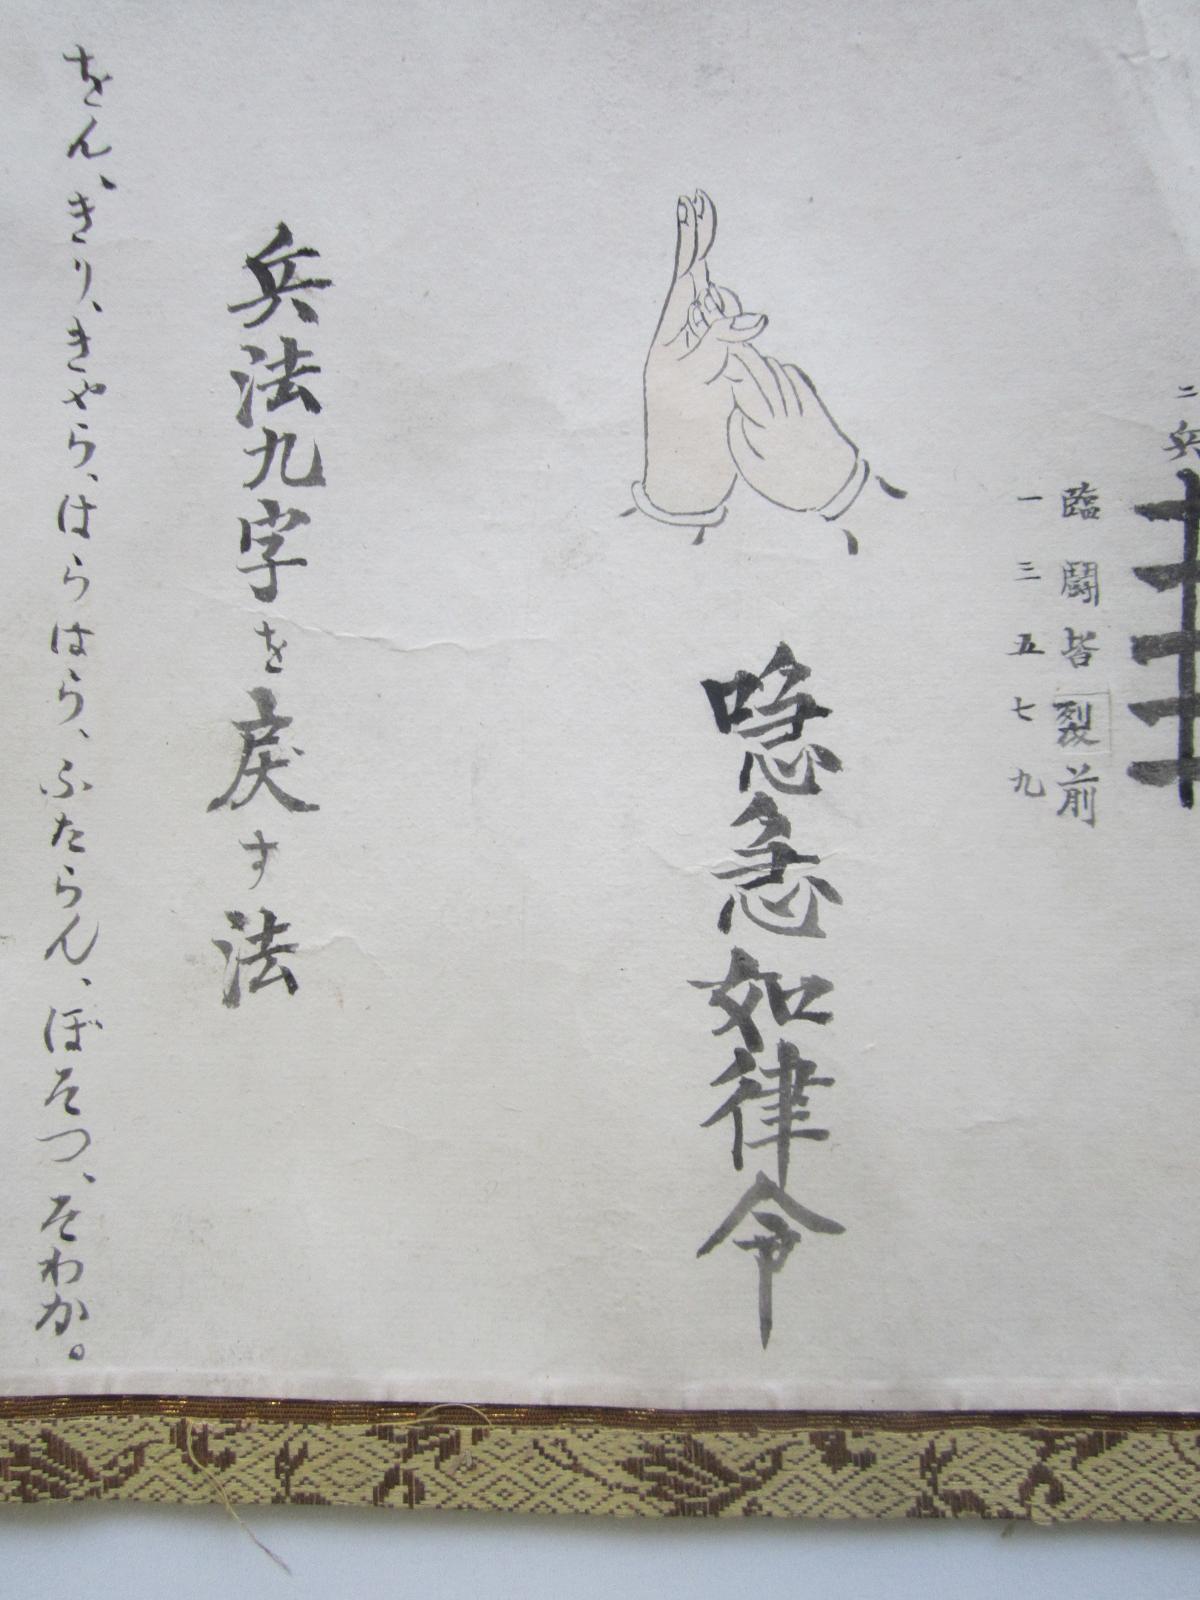 二 兵
臨闘皆裂前
一三五七九
喼急如律令
兵法九字を戻す法
をん、きり、きやら、はらはら、ふたらん、ぼそつ、そわか。